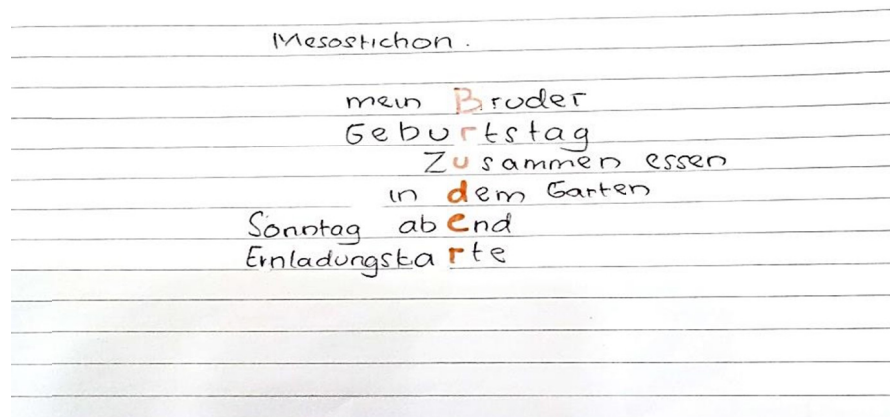 Mesostichon.
mein Bruder
Geburtstag
Zusammen essen
in dem Garten
Sonntag abend
Einladungskarte